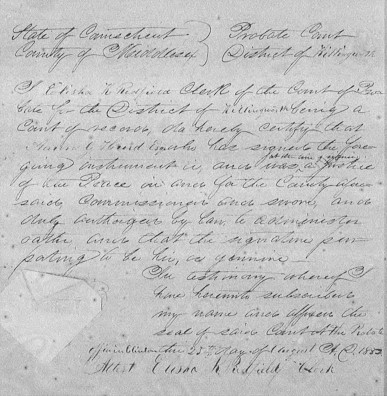 State of Connecticut ) Probate Court
County of Middlesex ) District of Killingworth
I Elisha K Redfield Clerk of the Court of Pro
bate for the District of Killingworth being a
Court of record, do hereby certify that
who has signed the fore
at the time of signing
going instrument is and was a Justice
of the Peace in and for the County afore
said, Commissioned and sworn, and
duly authorized by law to administer
oaths, and that the signature pur
porting to be his, is genuine.
In testimony whereof I
have hereunto subscribed
my name and affixed the
seal of said Court at the Probate
office in Clinton this 25th day of August A.D. 1852
Attest Elisha K Redfield Clerk